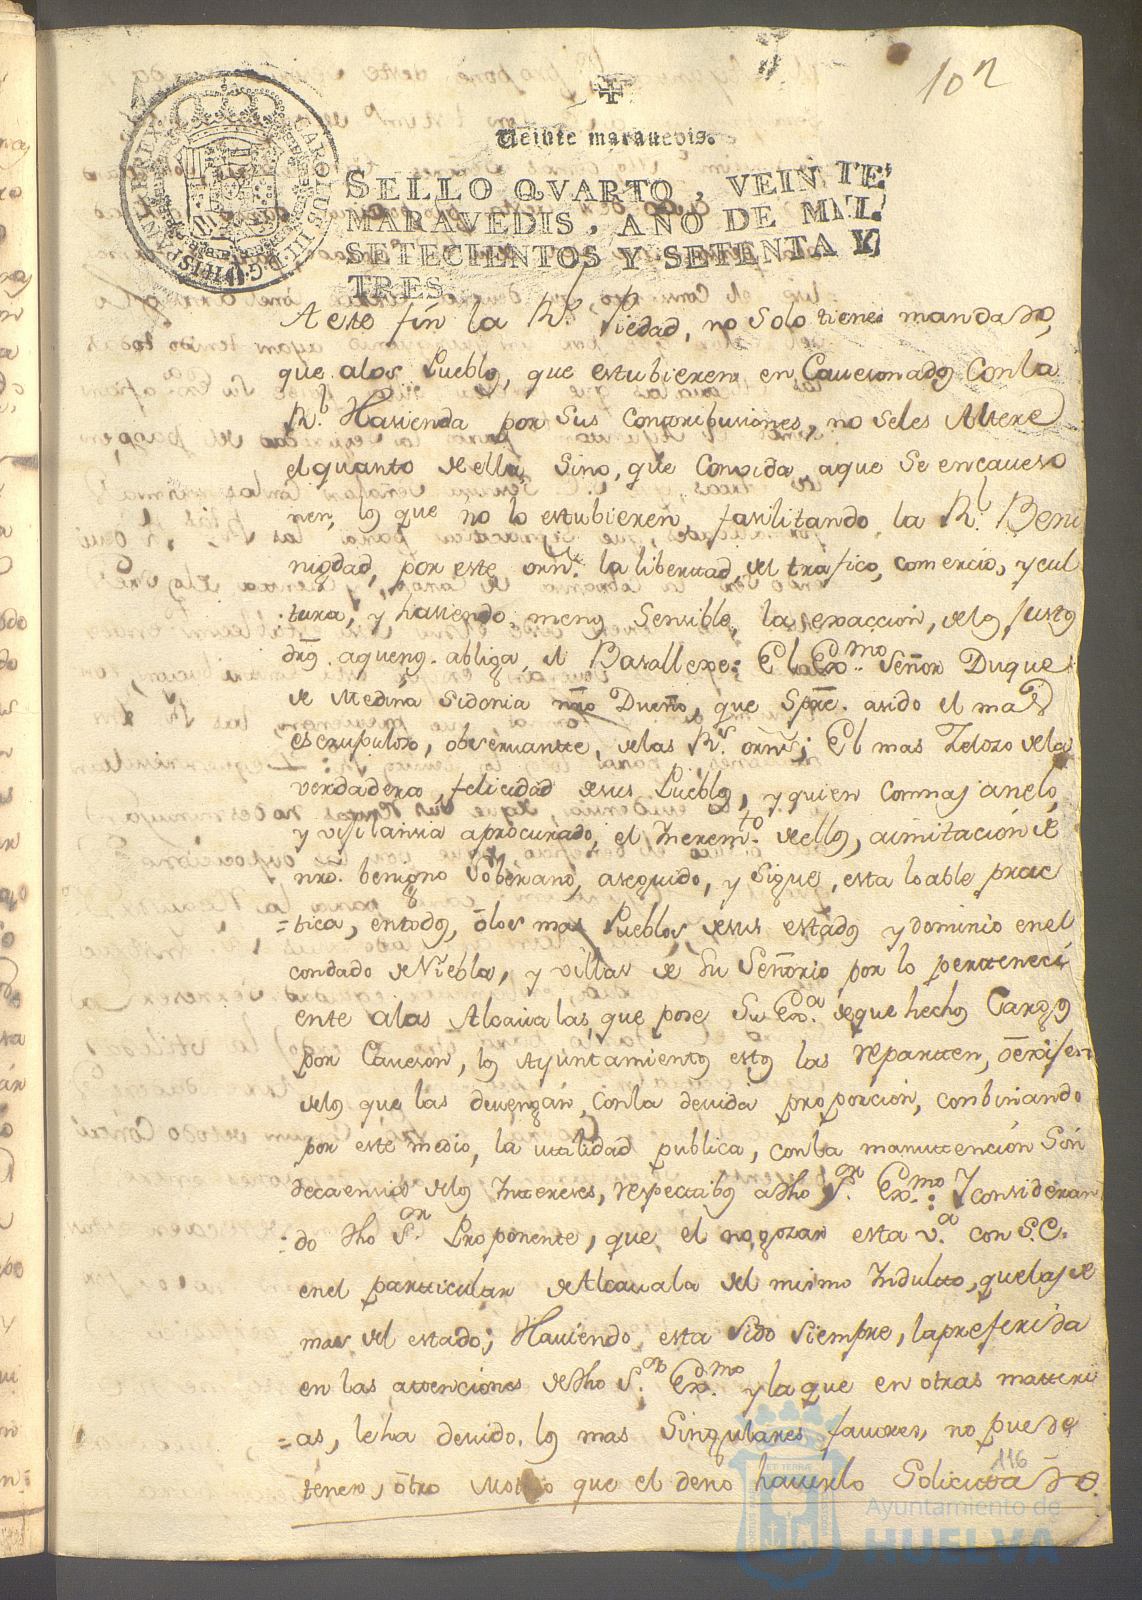 102
Veinte maravedis.
SELLO QVARTO, VEINTE
MARAVEDIS, AÑO DE MIL
SETECIENTOS Y SETENTA Y
TRES
CAROLUS III D.G. HISPANIAR REX
A este fin la Rl. Piedad, no solo tiene mandado,
que alos Pueblos, que estubieren en Cavesonados Con la
Rl. Hasienda por sus Contribusiones, no seles Altere
el quanto de ella, Sino, que Convida, aque se encaveso
nen, los que no lo estubieren, fasilitando la Rl. Beni
nigdad, por este orn. la libertad, del trafico, comercio, y cul
tura, y hasiendo menos Sensible, la exaccion, delos Justos
dros. aquenos. abliga el Basallexe: El Exmo. Señor Duque
de Medina Sidonia nro Dueño, que Spre. asido el mas
escrupuloso, observante, delas Rs. orns; El mas Zelozo dela
verdadera, felicidad desus Pueblos, y quien Conmas anelo,
y vijilansia aprocurado, el Increm.to dellos, aimitacion de
nro. benigno Soberano, aseguido, y Sigue, esta loable prac
=tica, entodos, ōlos mas Pueblos, desus estados y dominio enel
condado de Niebla, y villas de Su Señorio por lo perteneci
ente alas Alcavalas, que pose Su Exa. deque hechos Cargos
por Caveson, los Ayuntamientos estos las reparten, ō exijen
delos que las devengan, Conla devida proporcion, conbinando
por este medio, la utilidad publica, conla manutencion Son
decaensio delos Intereses, respectibos adho Sor. Exmo.: Y consideran
:do dho Sor. Proponente, que el no gozar esta va. con S.C.
enel particular de Alcavala del mismo Indulto, quelas de
mas del estado; Haviendo esta sido siempre, la preferida
en las atenciones de dho Sor. Exmo y la que en otras materi
=as, leha devido, los mas Singulares favores, no puede
tener, ōtro Motibo que el deno haverlo Solicitado.
116
Ayuntamiento de
HUELVA